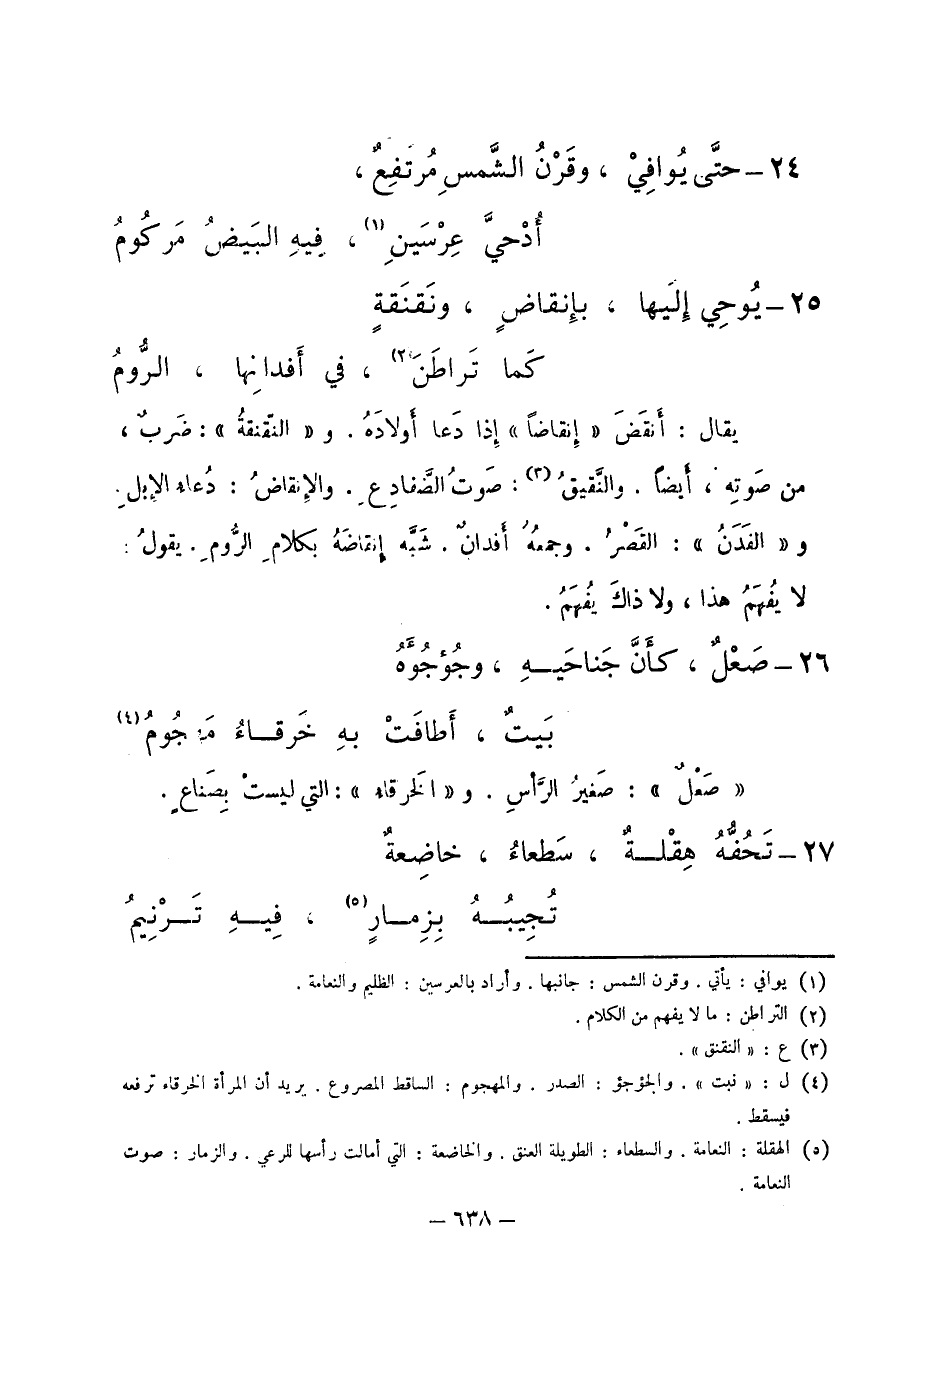 ٢٤ – حتَّى يُوافِيْ ، وقَرْنُ الشَّمسِ مُرتَفِعٌ ،
أُدْحيَّ عِرْسَينِ(١) ، فِيهِ البَيضُ مَركُومُ
٢٥ – يُوحِي إِلَيها ، بإِنقاضٍ ، ونَقنَقةٍ
كَما تَراطَنَ(٢) ، في أَفدانِها ، الرُّومُ
يقال : أَنقَضَ « إِنقاضاً » إِذا دَعا أَولادَهُ . و « النَّقنقةُ » : ضَربٌ ،
من صَوتِه ، أَيضاً . والنَّقيقُ(٣) : صَوتُ الضَّفادِعِ . والإنقاضُ : دُعاء الإبلِ .
و « الفَدَنُ » : القَصْرُ . وجمعُهُ أَفدانٌ . شَبَّه إِنقاضَهُ بكَلامِ الرُّومِ . يقولُ :
لا يُفهَمُ هذا ، ولا ذاكَ يُفهَمُ .
٢٦ – صَعْلٌ ، كأَنَّ جَناحَيهِ ، وجُؤجُؤَهُ
بَيتٌ ، أَطافَتْ بهِ خَرقاءُ مَهجُومُ(٤)
« صَعْلٌ » : صَغيرُ الرَّأسِ . و « الخَرقاء » : التي ليستْ بِصَناعٍ .
٢٧ – تَحُفُّهُ هِقْلةٌ ، سَطعاءُ ، خاضِعةٌ
تُجِيبُهُ بِزِمارٍ(٥) ، فِيهِ تَرْنِيمُ
(١) يوافي : يأتي . وقرن الشمس : جانبها . وأراد بالعرسين : الظليم والنعامة .
(٢) التراطن : ما لا يفهم من الكلام .
(٣) ع : « النقنق » .
(٤) ل : « نبت » . والجؤجؤ : الصدر . والمهجوم : الساقط المصروع . يريد أن المرأة الخرقاء ترفعه
فيسقط .
(٥) الهقلة : النعامة . والسطعاء : الطويلة العنق . والخاضعة : التي أمالت رأسها للرعي . والزمار : صوت
النعامة .
– ٦٣٨ –